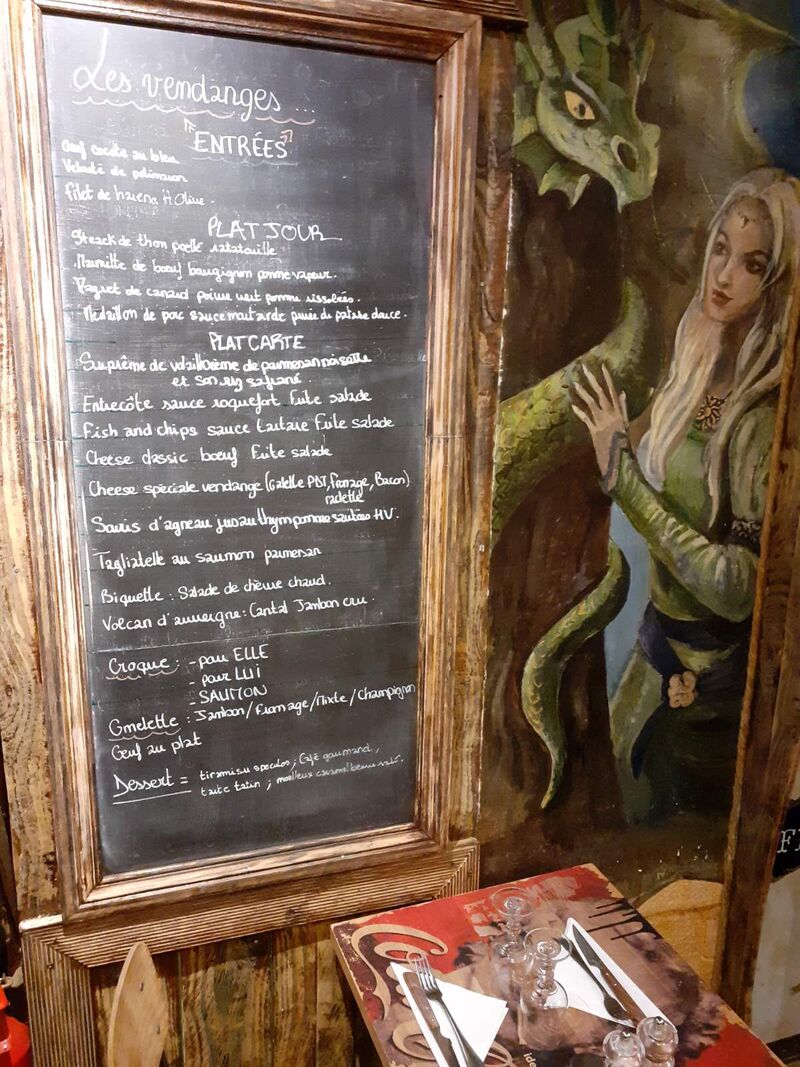 Les vendanges ...
ENTRÉES
Oeuf cocote au bleu
Velouté de potimaron
Filet de hareng H Olive.
PLAT JOUR
Steack de thon poellé ratatouille
Marmitte de boeuf bourgignon pomme vapeur.
de canard poivre vert pomme rissolées.
Médaillon de porc sauce moutarde purée de patate douce.
PLAT CARTE
Suprême de volaille crème de parmesan noisette
et son riz safrané.
Entrecôte sauce roquefort Frite salade
Fish and chips sauce tartare Frite salade
Cheese classic boeuf Frite salade
Cheese spéciale vendange (Galette PDT, fromage, Bacon)
raclette
Souris d'agneau jus au thym pomme sautées HV.
Tagliatelle au saumon parmesan
Biquette : Salade de chèvre chaud.
Volcan d'auvergne : Cantal Jambon cru.
Croque : - pour ELLE
- pour LUI
- SAUMON
Omelette : Jambon / Fromage / Mixte / Champignon
Oeuf au plat
Dessert = tiramisu speculos ; Café gourmand,
tarte tatin ; moelleux caramel beurre salé.